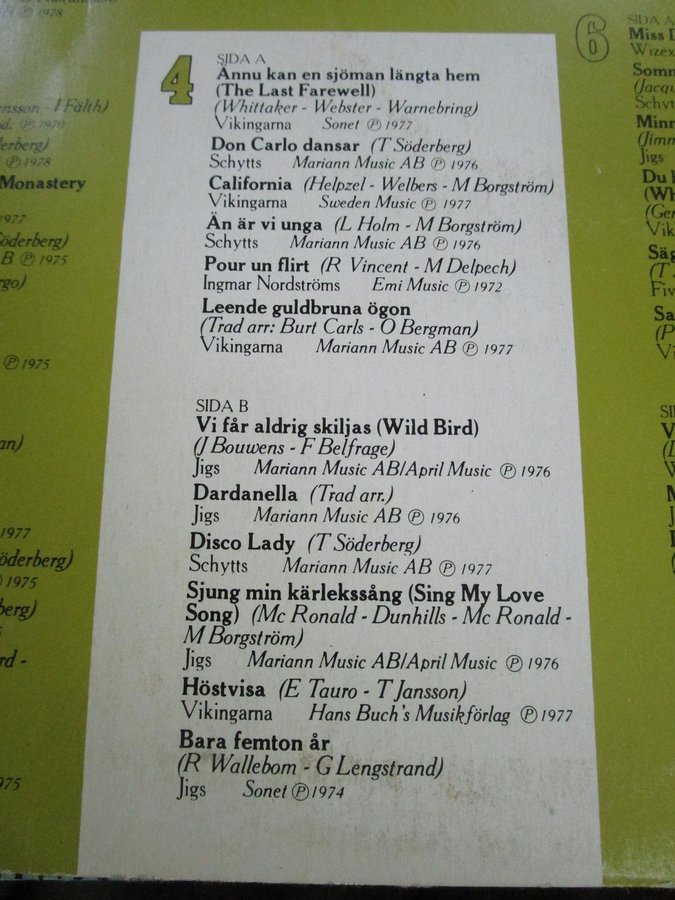 4
SIDA A
Ännu kan en sjöman längta hem
(The Last Farewell)
(Whittaker - Webster - Warnebring)
Vikingarna Sonet Ⓟ 1977
Don Carlo dansar (T Söderberg)
Schytts Mariann Music AB Ⓟ 1976
California (Helpzel - Welbers - M Borgström)
Vikingarna Sweden Music Ⓟ 1977
Än är vi unga (L Holm - M Borgström)
Schytts Mariann Music AB Ⓟ 1976
Pour un flirt (R Vincent - M Delpech)
Ingmar Nordströms Emi Music Ⓟ 1972
Leende guldbruna ögon
(Trad arr: Burt Carls - O Bergman)
Vikingarna Mariann Music AB Ⓟ 1977
SIDA B
Vi får aldrig skiljas (Wild Bird)
(J Bouwens - F Belfrage)
Jigs Mariann Music AB/April Music Ⓟ 1976
Dardanella (Trad arr.)
Jigs Mariann Music AB Ⓟ 1976
Disco Lady (T Söderberg)
Schytts Mariann Music AB Ⓟ 1977
Sjung min kärlekssång (Sing My Love
Song) (Mc Ronald - Dunhills - Mc Ronald -
M Borgström)
Jigs Mariann Music AB/April Music Ⓟ 1976
Höstvisa (E Tauro - T Jansson)
Vikingarna Hans Buch's Musikförlag Ⓟ 1977
Bara femton år
(R Wallebom - G Lengstrand)
Jigs Sonet Ⓟ 1974
Ⓟ 1978
I Fälth)
Ⓟ 1970
Ⓟ 1978
Monastery
1977
Söderberg)
B Ⓟ 1975
Ⓟ 1975
1977
Söderberg)
1975
1975
6
SIDA A
Miss
Jigs
SI